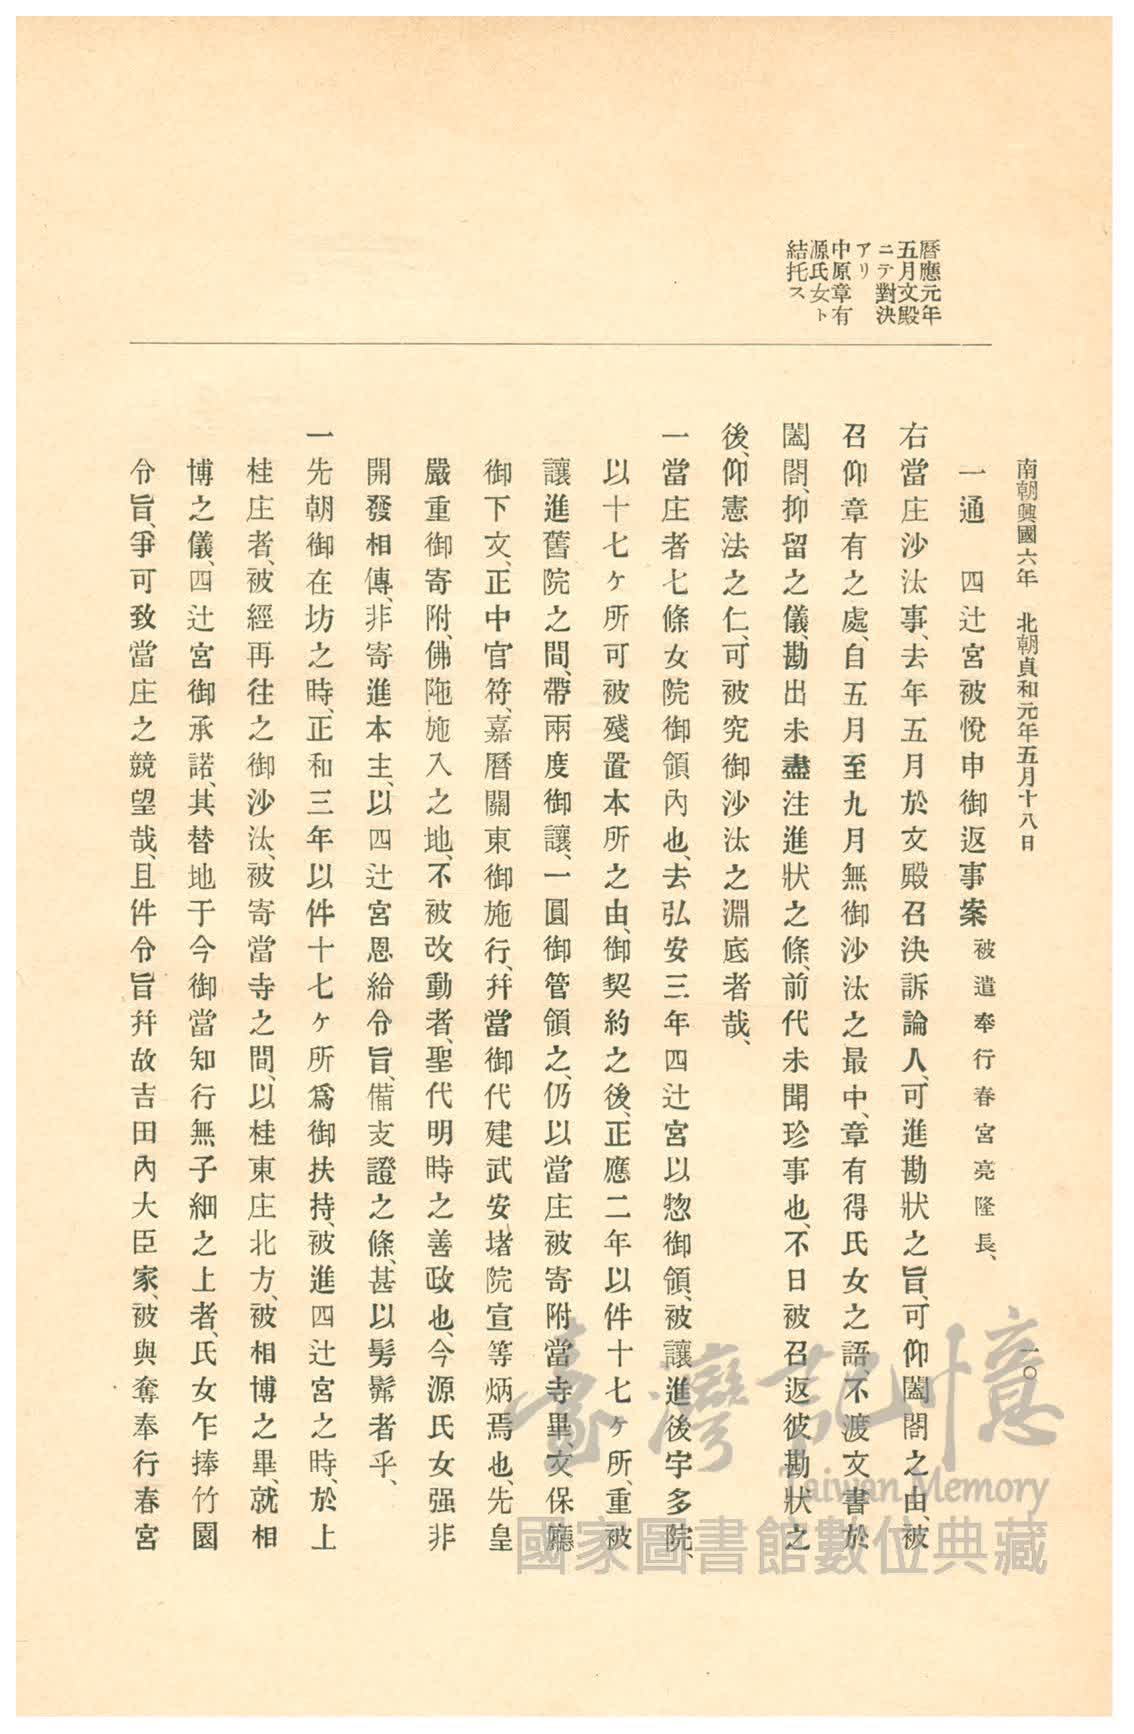 南朝興國六年　北朝貞和元年五月十八日
一〇
曆應元年
五月文殿
ニテ對決
アリ
中原章有
源氏女ト
結托ス
一通　四辻宮被悅申御返事案　被遣奉行春宮亮隆長、
右當庄沙汰事、去年五月於文殿召決訴論人、可進勘狀之旨、可仰闔閤之由、被
召仰章有之處、自五月至九月無御沙汰之最中、章有得氏女之語不渡文書於
闔閤、抑留之儀、勘出未盡注進狀之條、前代未聞珍事也、不日被召返彼勘狀之
後、仰憲法之仁、可被究御沙汰之淵底者哉、
一當庄者七條女院御領內也、去弘安三年四辻宮以惣御領、被讓進後宇多院、
以十七ヶ所可被殘置本所之由、御契約之後、正應二年以件十七ヶ所、重被
讓進舊院之間、帶兩度御讓、一圓御管領之、仍以當庄被寄附當寺畢、文保廳
御下文、正中官符、嘉曆關東御施行、幷當御代建武安堵院宣等炳焉也、先皇
嚴重御寄附、佛陁施入之地、不被改動者、聖代明時之善政也、今源氏女强非
開發相傳、非寄進本主、以四辻宮恩給令旨、備支證之條、甚以髣髴者乎、
一先朝御在坊之時、正和三年以件十七ヶ所爲御扶持、被進四辻宮之時、於上
桂庄者、被經再往之御沙汰、被寄當寺之間、以桂東庄北方、被相博之畢、就相
博之儀、四辻宮御承諾、其替地于今御當知行無子細之上者、氏女乍捧竹園
令旨、爭可致當庄之競望哉、且件令旨幷故吉田內大臣家、被與奪奉行春宮
臺灣記憶
Taiwan Memory
國家圖書館數位典藏